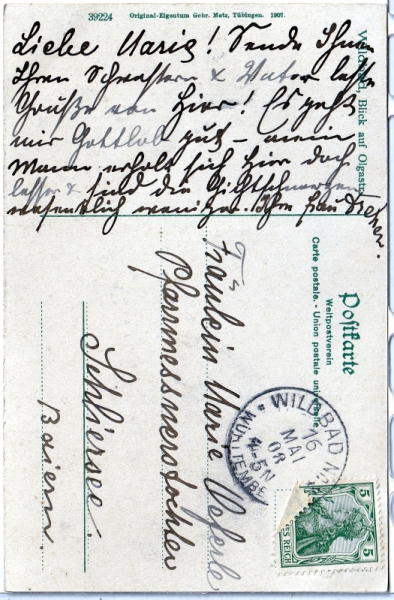 39224 Original-Eigentum Gebr. Metz, Tübingen. 1907.
Liebe Marie! Sende Ihnen
Ihren Schwestern & Vater beste
Grüße von hier! Es geht
mir Gottlob gut – mein
Mann erholt sich hier doch
besser & sind die Gichtschmerzen
wesentlich weniger. Ihre Frau
Blick auf Olgastr.
Postkarte
Weltpostverein
Carte postale. - Union postale universelle
Fräulein Marie
Pfarrmessnerstochter
Schliersee.
Baiern.
WILDBAD
16
MAI
08
4-5N
WÜRTTEMBE
5
5
REICH